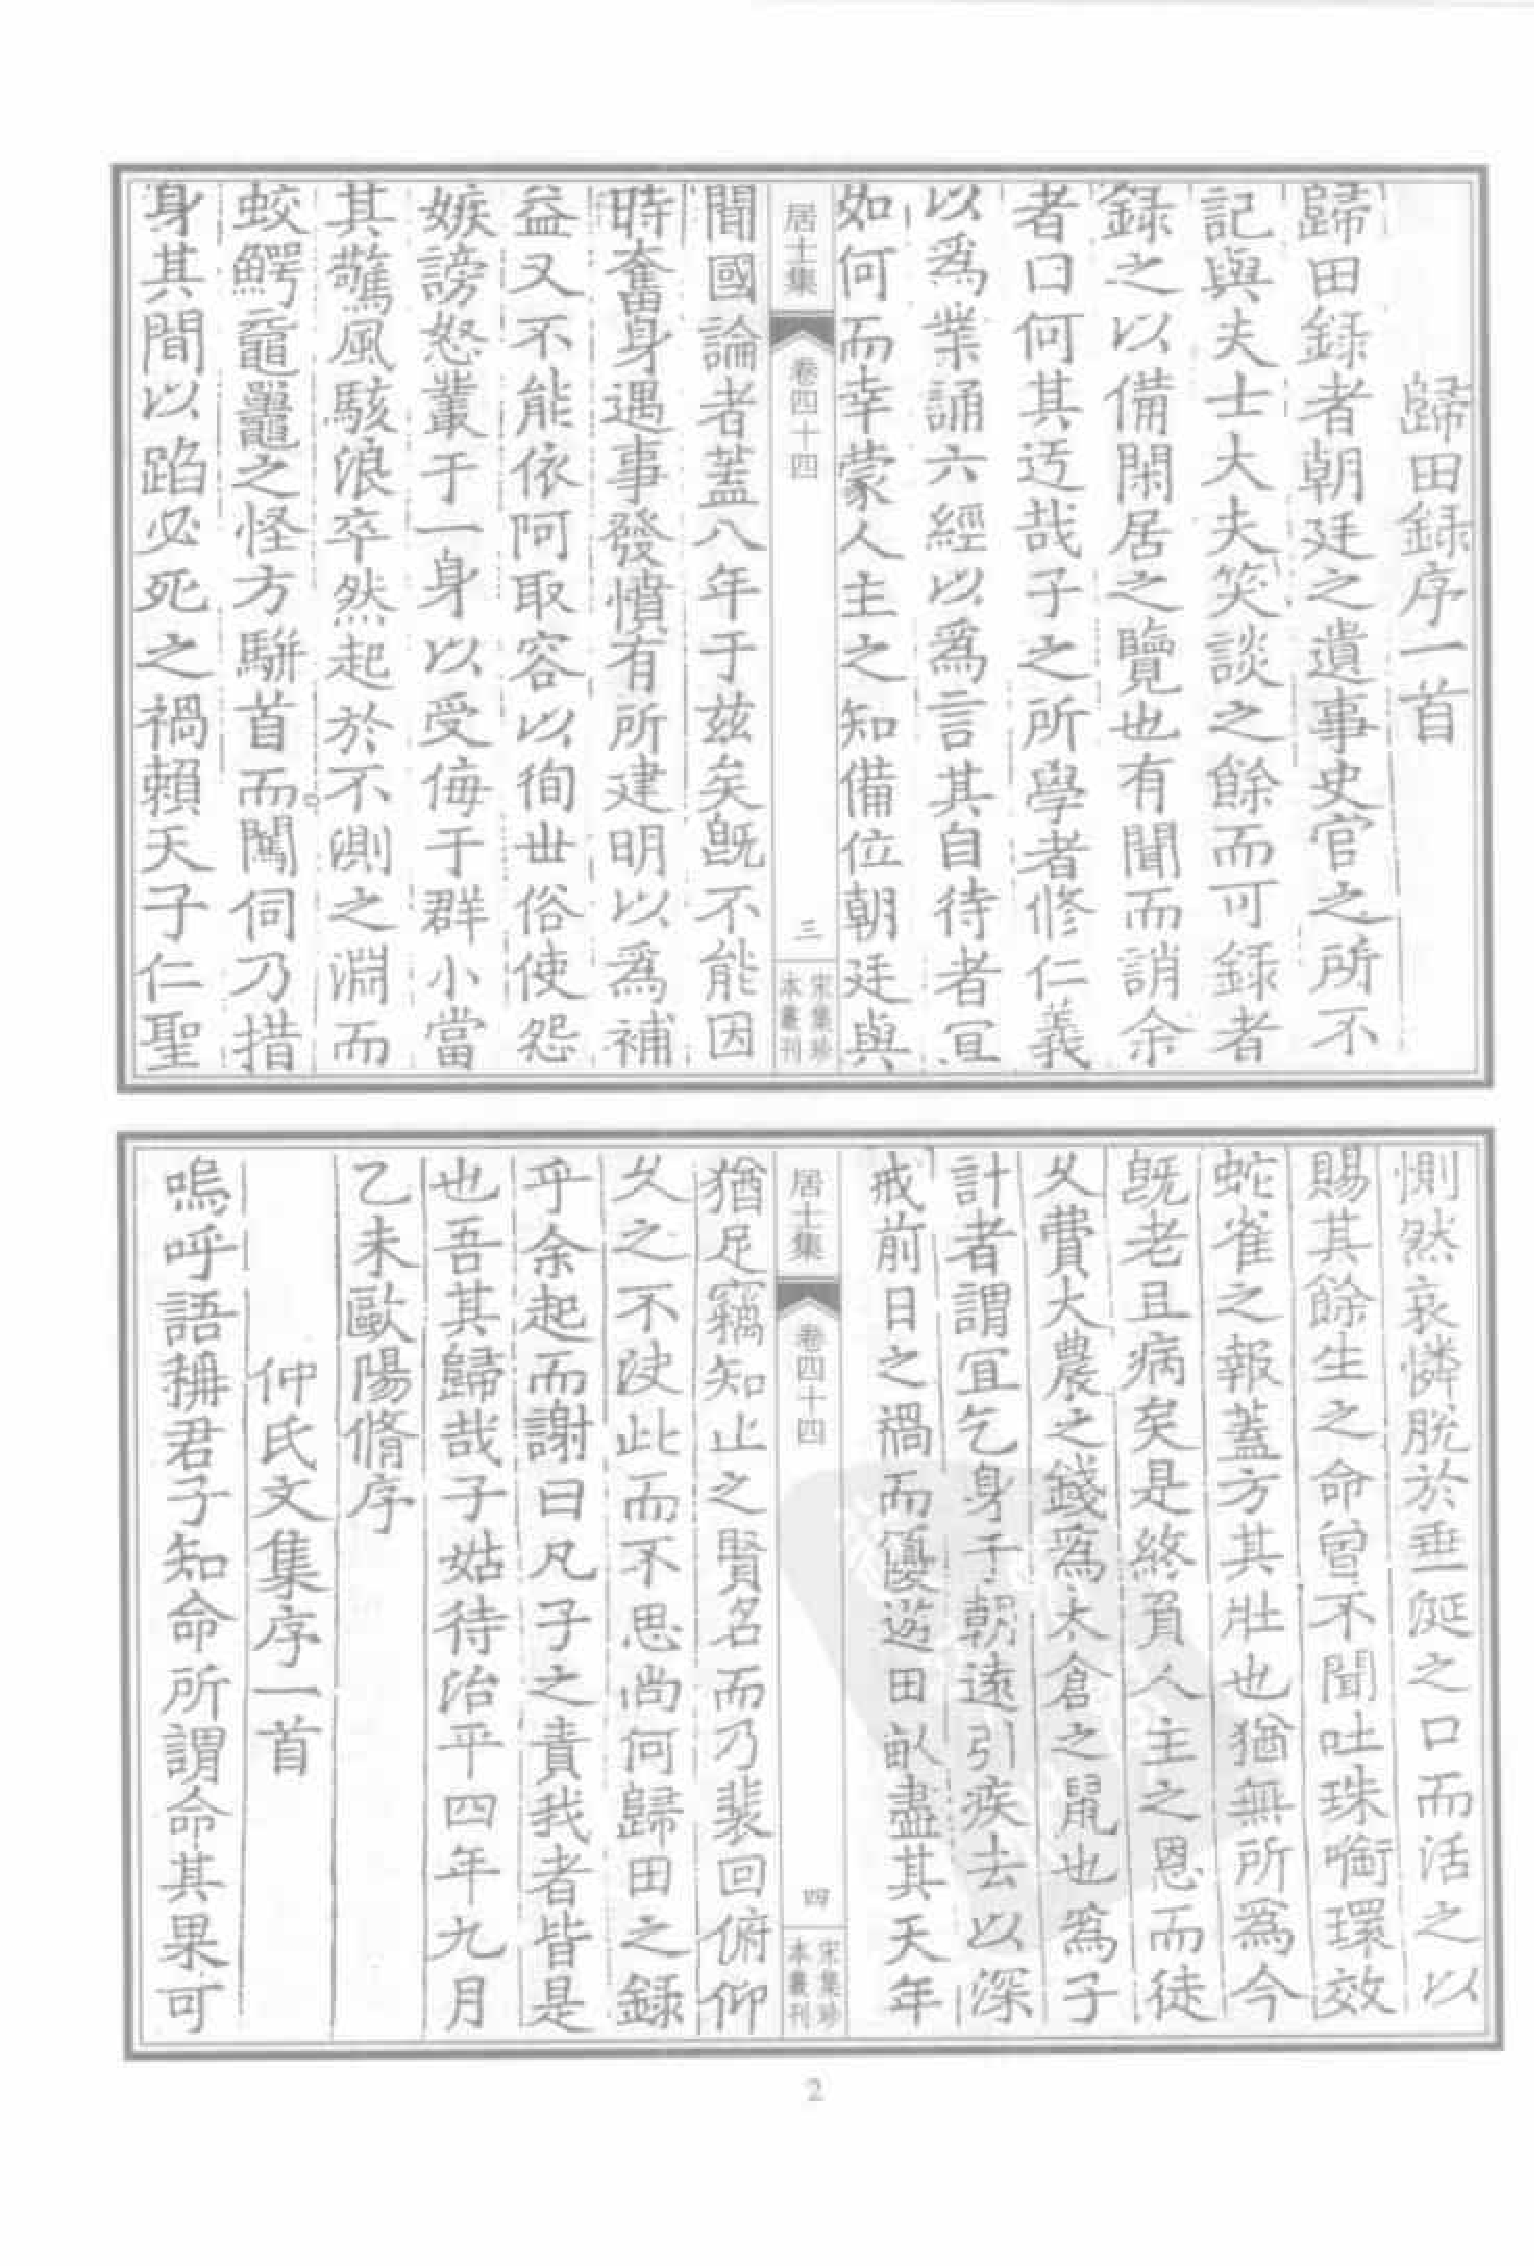 歸田録序一首
歸田録者朝廷之遺事史官之所不
記與夫士大夫笑談之餘而可録者
録之以備閑居之覽也有聞而誚余
者曰何其迃哉子之所學者修仁義
以爲業誦六經以爲言其自待者宜
如何而幸蒙人主之知備位朝廷與
居士集
卷四十四
三
宋集珍
本叢刊
聞國論者蓋八年于茲矣旣不能因
時奮身遇事發憤有所建明以爲補
益又不能依阿取容以徇世俗使怨
嫉謗怒叢于一身以受侮于群小當
其驚風駭浪卒然起於不測之淵而
蛟鰐黿鼉之怪方駢首而闖伺乃措
身其間以蹈必死之禍賴天子仁聖
惻然哀憐脫於垂涎之口而活之以
賜其餘生之命曾不聞吐珠銜環效
蛇雀之報蓋方其壯也猶無所爲今
旣老且病矣是終負人主之恩而徒
久費大農之錢爲太倉之鼠也爲子
計者謂宜乞身于朝遠引疾去以深
戒前日之禍而優遊田畝盡其天年
居士集
卷四十四
四
宋集珍
本叢刊
猶足竊知止之賢名而乃裴回俯仰
久之不決此而不思尚何歸田之録
乎余起而謝曰凡子之責我者皆是
也吾其歸哉子姑待治平四年九月
乙未歐陽脩序
仲氏文集序一首
嗚呼語稱君子知命所謂命其果可
2